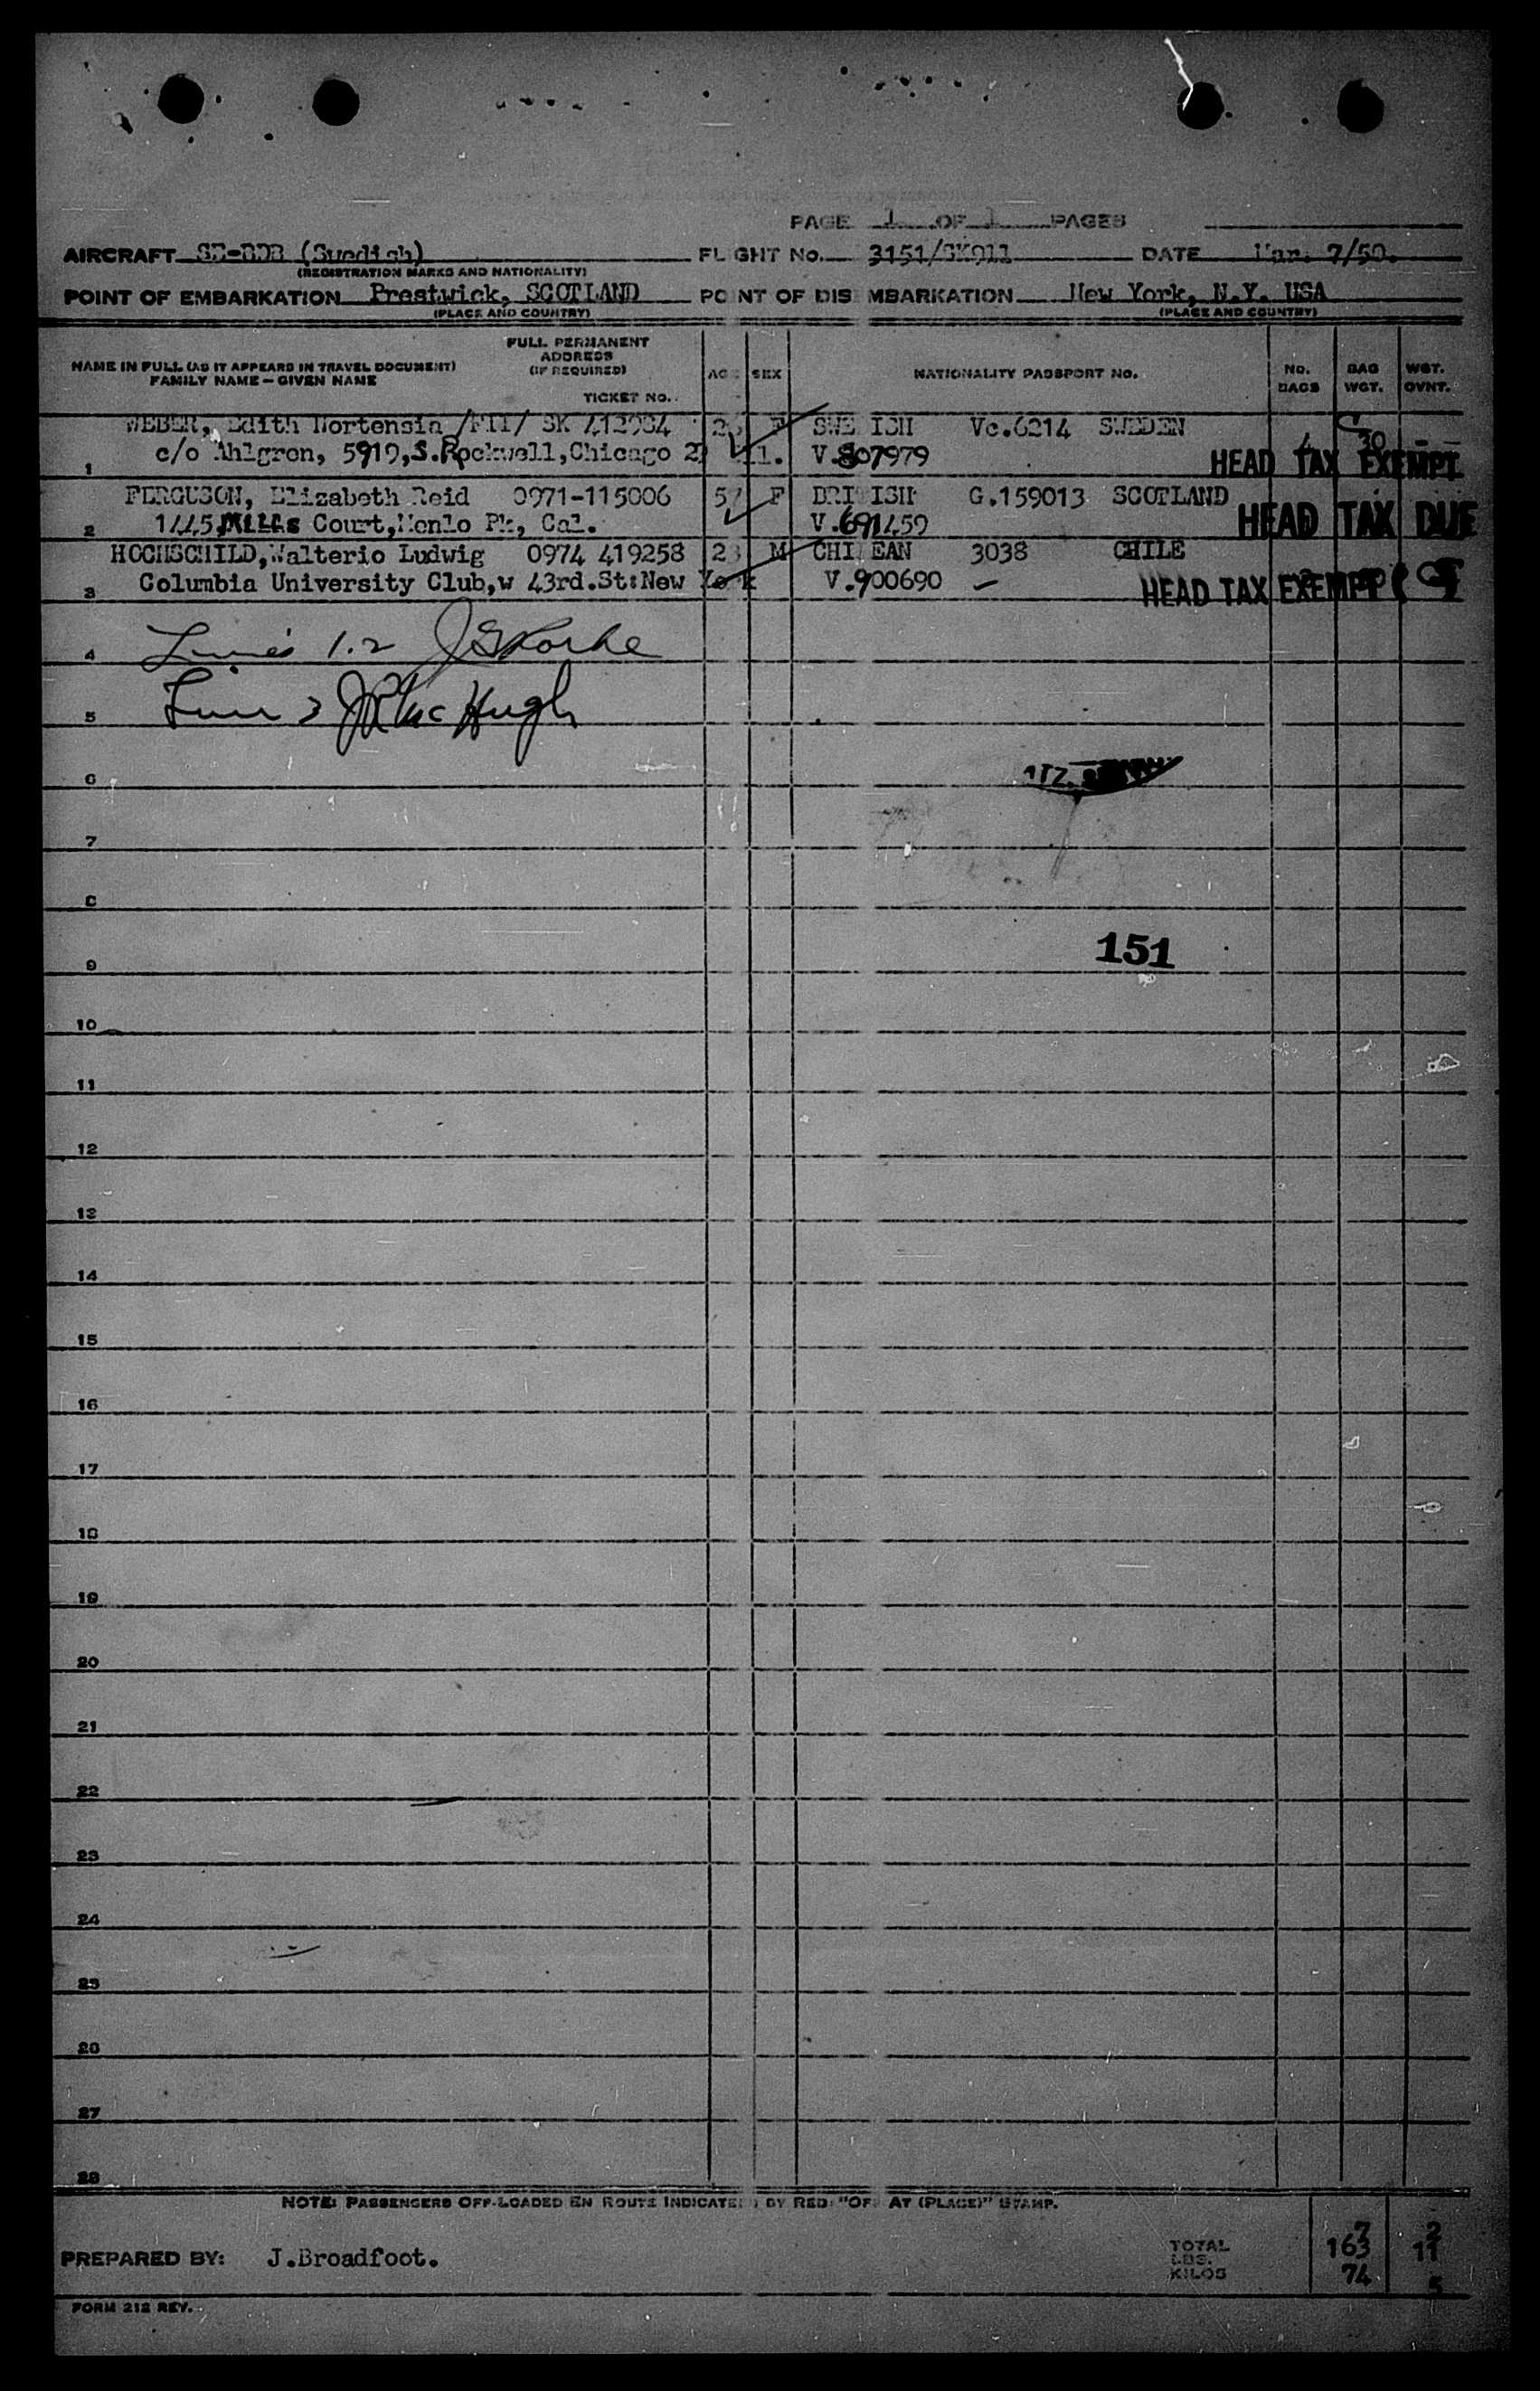 PAGE 1 OF 1 PAGES
AIRCRAFT SE-BDB (Swedish) FLIGHT NO. 3151/SK911 DATE Mar. 7/50.
(REGISTRATION MARKS AND NATIONALITY)
POINT OF EMBARKATION Prestwick, SCOTLAND POINT OF DISEMBARKATION New York, N.Y. USA
(PLACE AND COUNTRY) (PLACE AND COUNTRY)
NAME IN FULL (AS IT APPEARS IN TRAVEL DOCUMENT)
FAMILY NAME — GIVEN NAME
FULL PERMANENT
ADDRESS
(IF REQUIRED)
TICKET NO.
AGE SEX NATIONALITY PASSPORT NO. NO. BAGS BAG WGT. WGT. OVNT.
WEBER, Edith Hortensia /FII/ SK 412984 F SWE ISH Vc.6214 SWEDEN 4 30 - -
1 c/o Ahlgren, 5919, S. Rockwell, Chicago V.807979 HEAD TAX EXEMPT
FERGUSON, Elizabeth Reid 0971-115006 F BRI ISH G.159013 SCOTLAND
2 1445 Mills Court, Menlo Pk, Cal. V.691459 HEAD TAX DUE
HOCHSCHILD, Walterio Ludwig 0974 419258 M CHI EAN 3038 CHILE
3 Columbia University Club, w 43rd. St: New York V.900690 — HEAD TAX EXEMPT
4 Lines 1.2
5 Line 3 McHugh
6
7
8
9 151
10
11
12
13
14
15
16
17
18
19
20
21
22
23
24
25
26
27
28
NOTE: PASSENGERS OFF-LOADED EN ROUTE INDICATED BY RED "OFF AT (PLACE)" STAMP.
7 2
PREPARED BY: J.Broadfoot. TOTAL LBS. 163 11
KILOS 74 5
FORM 212 REV.